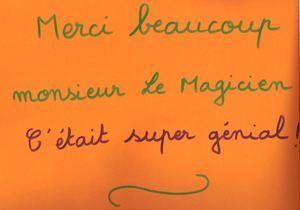 Merci beaucoup
monsieur Le Magicien
C'était super génial !